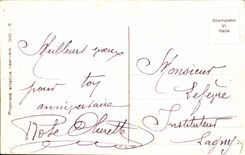 Stampato in Italia
Proprietà artistica riservata
Meilleurs voeux
pour toy
anniversaire
Monsieur
Lefèvre
Instituteur
Lagny